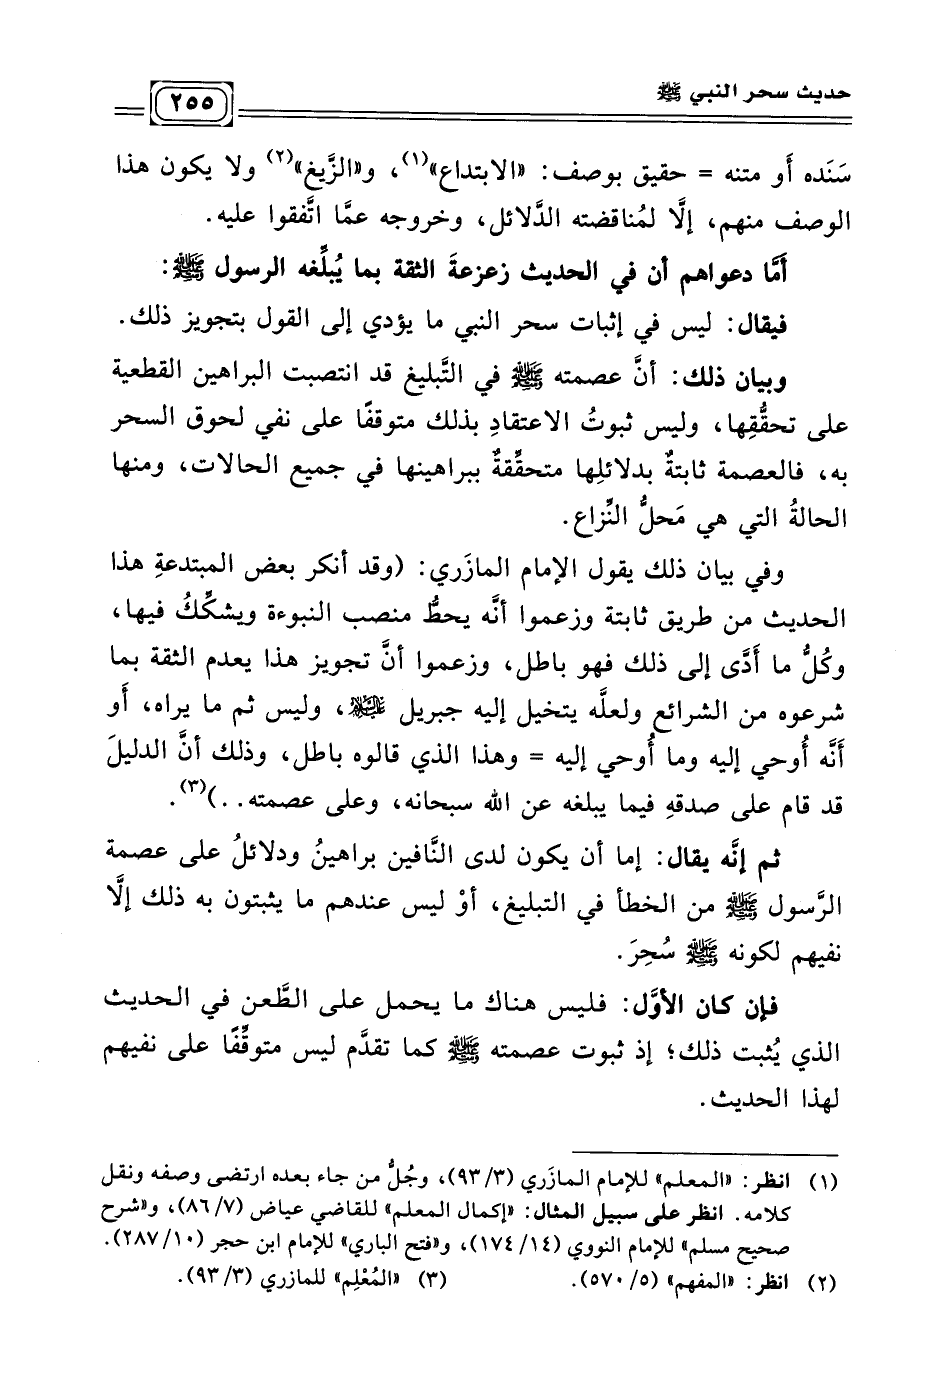 حديث سحر النبي ﷺ
٢٥٥
سَنَده أَو متنه = حقيق بوصف: «الابتداع»(١)، و«الزَّيغ»(٢) ولا يكون هذا
الوصف منهم، إلَّا لمُناقضته الدَّلائل، وخروجه عمَّا اتَّفقوا عليه.
أمَّا دعواهم أن في الحديث زعزعةَ الثقة بما يُبلِّغه الرسول ﷺ:
فيقال: ليس في إثبات سحر النبي ما يؤدي إلى القول بتجويز ذلك.
وبيان ذلك: أنَّ عصمته ﷺ في التَّبليغ قد انتصبت البراهين القطعية
على تحقُّقِها، وليس ثبوتُ الاعتقادِ بذلك متوقفًا على نفي لحوق السحر
به، فالعصمة ثابتةٌ بدلائلِها متحقِّقةٌ ببراهينها في جميع الحالات، ومنها
الحالةُ التي هي مَحلُّ النِّزاع.
وفي بيان ذلك يقول الإمام المازَري: (وقد أنكر بعض المبتدعةِ هذا
الحديث من طريق ثابتة وزعموا أنَّه يحطُّ منصب النبوءة ويشكِّكُ فيها،
وكُلُّ ما أَدَّى إلى ذلك فهو باطل، وزعموا أنَّ تجويز هذا يعدم الثقة بما
شرعوه من الشرائع ولعلَّه يتخيل إليه جبريل عليه السلام، وليس ثم ما يراه، أَو
أَنَّه أُوحي إليه وما أُوحي إليه = وهذا الذي قالوه باطل، وذلك أنَّ الدليلَ
قد قام على صدقهِ فيما يبلغه عن الله سبحانه، وعلى عصمته..)(٣).
ثم إنَّه يقال: إما أن يكون لدى النَّافين براهينُ ودلائلُ على عصمة
الرَّسول ﷺ من الخطأ في التبليغ، أوْ ليس عندهم ما يثبتون به ذلك إلَّا
نفيهم لكونه ﷺ سُحِرَ.
فإن كان الأوَّل: فليس هناك ما يحمل على الطَّعن في الحديث
الذي يُثبت ذلك؛ إذ ثبوت عصمته ﷺ كما تقدَّم ليس متوقِّفًا على نفيهم
لهذا الحديث.
(١) انظر: «المعلم» للإمام المازَري (٣/ ٩٣)، وجُلُّ من جاء بعده ارتضى وصفه ونقل
كلامه. انظر على سبيل المثال: «إكمال المعلم» للقاضي عياض (٧/ ٨٦)، و«شرح
صحيح مسلم» للإمام النووي (١٤/ ١٧٤)، و«فتح الباري» للإمام ابن حجر (١٠/ ٢٨٧).
(٢) انظر: «المفهم» (٥/ ٥٧٠). (٣) «المُعْلِم» للمازري (٣/ ٩٣).